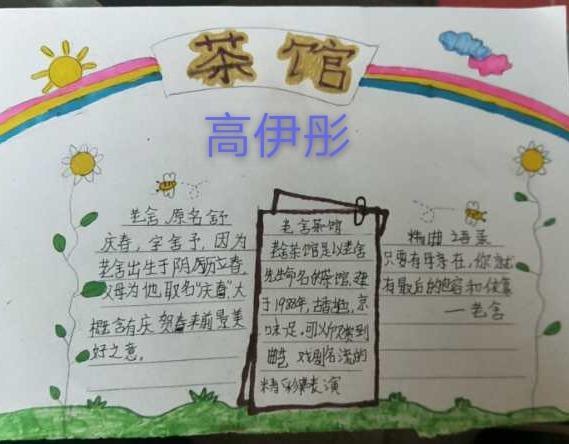 茶馆
高伊彤
老舍原名舒
庆春，字舍予，因为
老舍出生于阴历立春，
父母为他，取名"庆春"大
概含有庆贺春来前景美
好之意。
老舍茶馆
老舍茶馆是以老舍
先生命名的茶馆，建
于1988年，古香，京
味足，可以欣赏到
戏剧名流的
精彩表演
精曲语录
只要有母亲在，你就
有最后的和依靠
一老舍